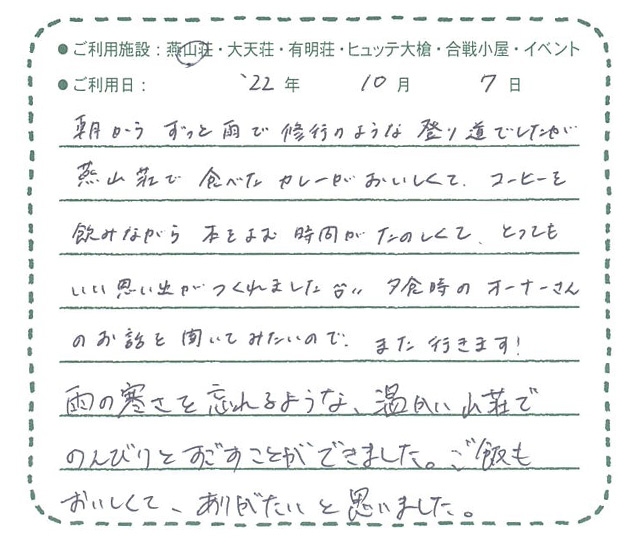 ●ご利用施設：燕山荘・大天荘・有明荘・ヒュッテ大槍・合戦小屋・イベント
●ご利用日： '22年 10月 7日
朝から ずっと雨で 修行のような 登り道でしたが
燕山荘で 食べた カレーが おいしくて、コーヒーを
飲みながら 本をよむ 時間が たのしくて、とっても
いい思い出が つくれました 夕食時の オーナーさん
のお話を 聞いてみたいので、また 行きます!
雨の寒さを忘れるような、温かい山荘で
のんびりとすごすことができました。ご飯も
おいしくて、ありがたいと思いました。